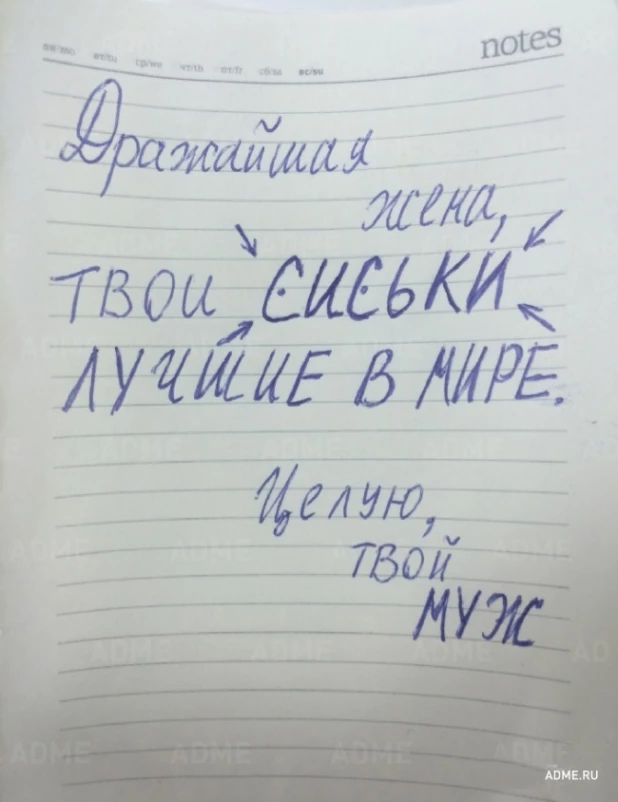 notes
пн/mo вт/tu ср/we чт/th пт/fr сб/sa вс/su
Дражайшая
жена,
ТВОИ СИСЬКИ
ЛУЧШИЕ В МИРЕ.
Целую,
ТВОЙ
МУЖ
ADME
ADME.RU